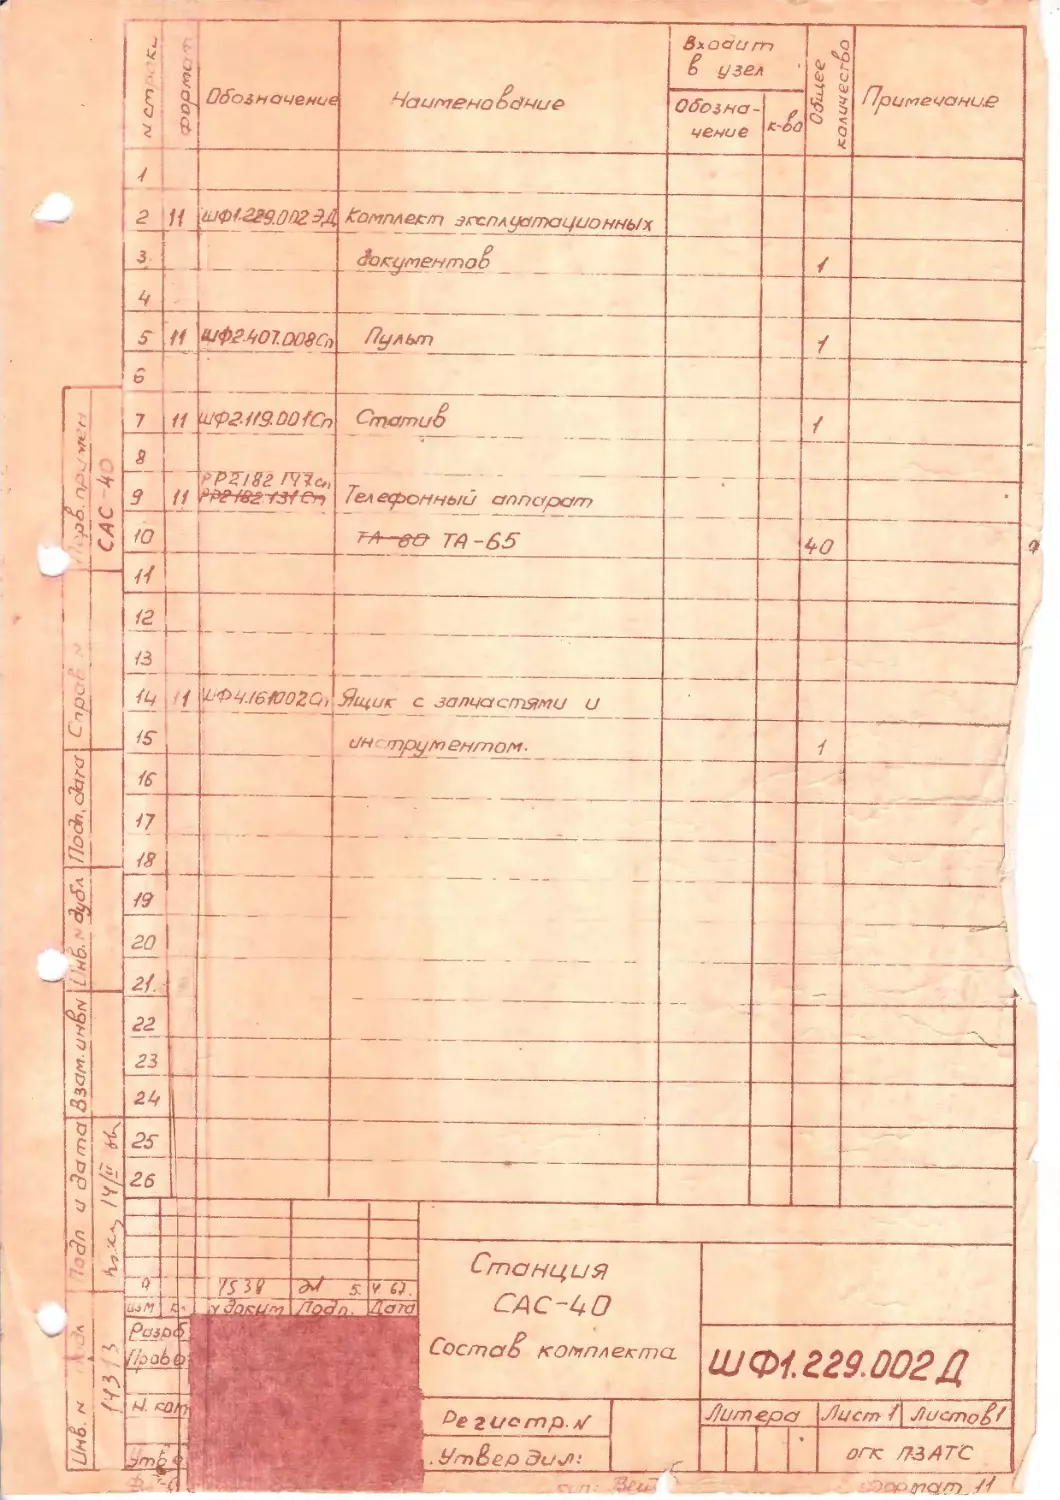 N строки
Формат
Обозначение
Наименование
Входит
в узел
Обозна-
чение
к-во
Общее
количество
Примечание
1
2 11 ШФ1.229.002 ЭД Комплект эксплуатационных
3 документов 1
4
5 11 ШФ2.407.008Сп Пульт 1
6
7 11 ШФ2.119.001Сп Статив 1
8
9 11 РР2182 131 Сп Телефонный аппарат
10 ТА-60 ТА-65 40
11
12
13
14 11 ШФ4.161002Сп Ящик с запчастями и
15 инструментом. 1
16
17
18
19
20
21.
22
23
24
25
26
Перв. примен
САС-40
Справ N
Подп. дата
Инв. N дубл
Взам. инв N
Подп и дата
Инв. N подл
14313
Изм
N докум
Подп.
Дата
Разраб
Провер
Н. кон
Утв
Станция
САС-40
Состав комплекта
ШФ1.229.002Д
Регистр. N
Утвердил:
Литера Лист 1 Листов 1
ОГК ПЗАТС
Формат 11